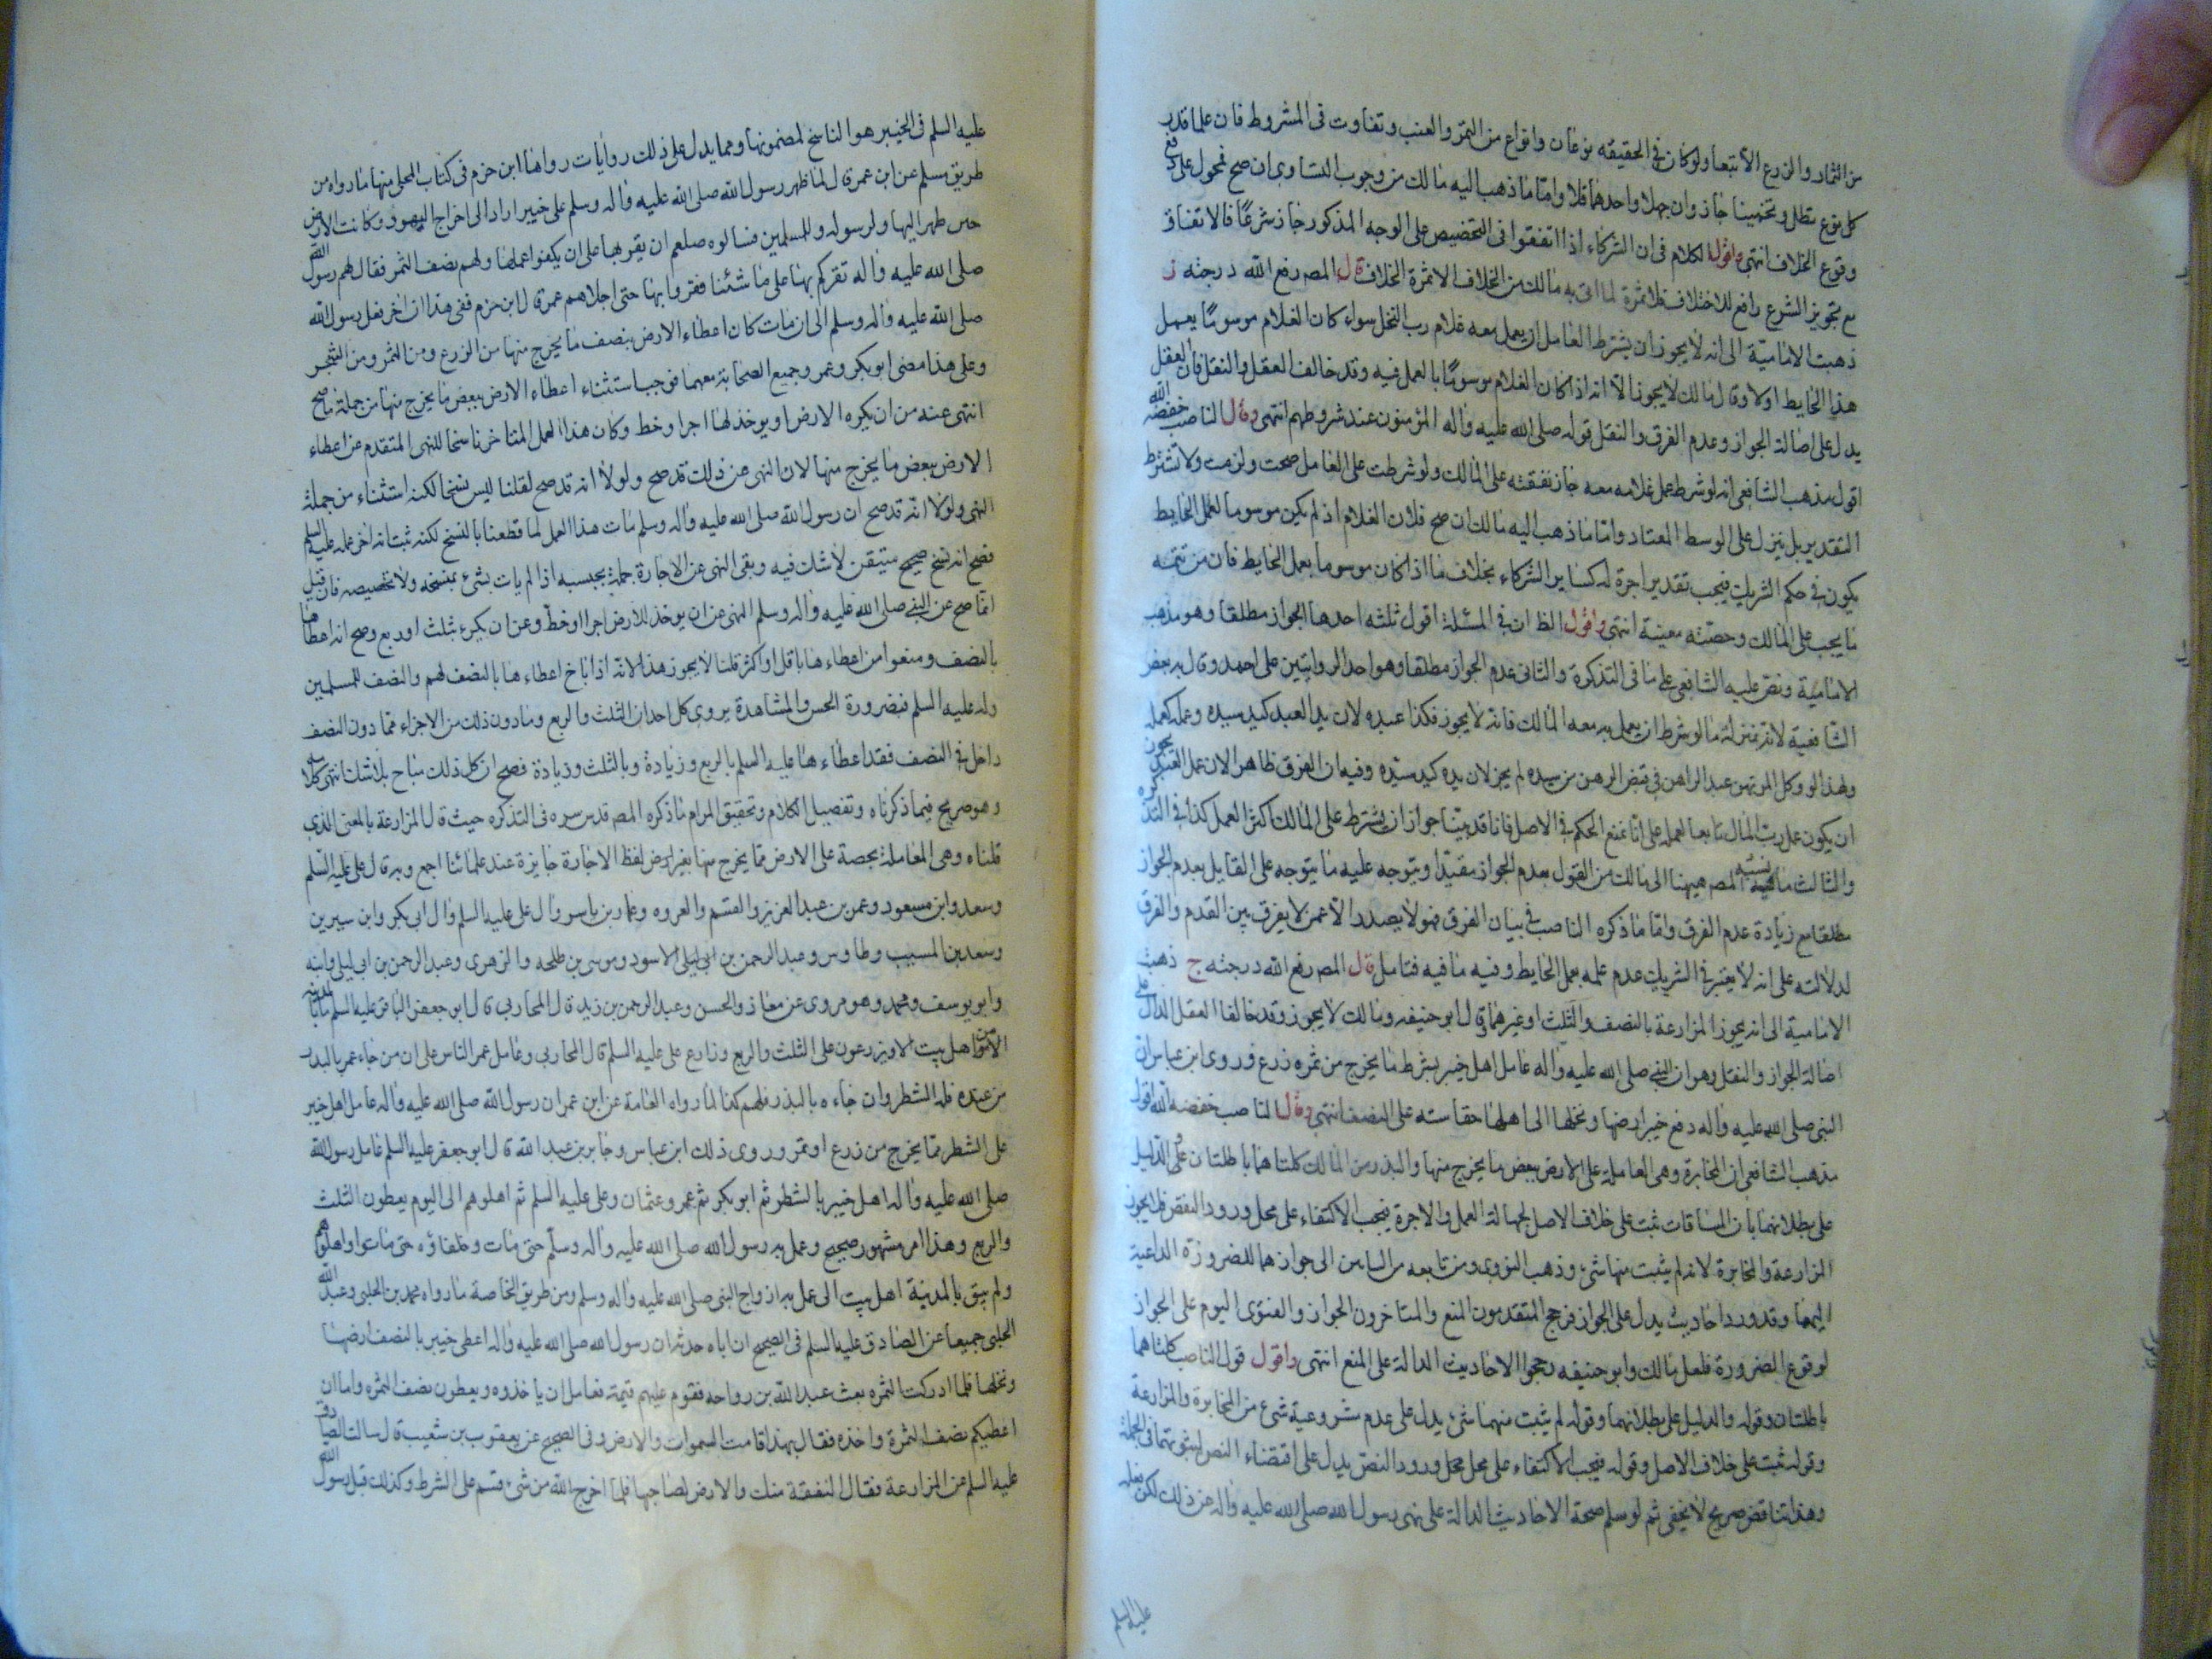 من الثمار والزرع الا تبعا ولو كان في الحقيقه نوعان وانواع من التمر والعنب وتفاوت في المشروط فان علما قدر
كل نوع بتطل وتخمينا جاز وان جهلا واحدهما فلا واما ما ذهب اليه مالك من وجوب التساوي ان صح فمحول على دفع
وقوع الخلاف انتهى واقول الكلام في ان الشركاء اذا اتفقوا في التخصيص على الوجه المذكور جاز شرعا فالاتفاق
مع تجويز الشرع رافع للاختلاف فلا ثمرة لما اتى به مالك من الخلاف الا ثمرة الخلاف قال المصر رفع الله درجته ز
ذهبت الامامية الى انه لا يجوز ان يشترط العامل ان يعمل معه غلام رب النخل سواء كان الغلام موسوما يعمل
هذا الحايط اولا وقال مالك لا يجوز الا انه اذا كان الغلام موسوما بالعمل فيه وقد خالف العقل والنقل فان العقل
يدل على اصالة الجواز وعدم الفرق والنقل قوله صلى الله عليه واله المؤمنون عند شروطهم انتهى وقال الناصب خفضه الله
اقول مذهب الشافعي انه لو شرط عمل غلامه معه جاز نفقته على المالك ولو شرطت على العامل صحت ولزمت ولا تشترط
التقدير بل ينزل على الوسط المعتاد واما ما ذهب اليه مالك ان صح فلان الغلام اذ لم يكن موسوما لعمل الحايط
يكون في حكم الشريك فيجب تقدير اجرة له كساير الشركاء بخلاف ما اذا كان موسوما بعمل الحايط فان من تتمته
ما يجب على المالك وحصته معينة انتهى واقول الظ ان في المسئلة اقول ثلثه احدها الجواز مطلقا وهو مذهب
الامامية ونص عليه الشافعي على ما في التذكرة والثاني عدم الجواز مطلقا وهو احد الروايتين على احمد وقال به بعض
الشافعية لانه بمنزلة ما لو شرط ان يعمل به معه المالك فانه لا يجوز فكذا عبده لان يد العبد كيد سيده وعمله كعمله
ولهذا لو وكل المرتهن عبد الراهن في قبض الرهن من سيده لم يجز لان يده كيد سيده وفيه ان الفرق ظاهر لان عمل العبد يجوز
ان يكون عمل رب المال تابعا لعمله على انا نمنع الحكم في الاصل فانا قد بينا جواز ان يشترط على المالك اكثر العمل كذا في التذكره
والثالث ما نسبه المصر هيهنا الى مالك من القول بعدم الجواز مقيدا ويتوجه عليه ما يتوجه على القايل بعدم الجواز
مطلقا مع زيادة عدم الفرق واما ما ذكره الناصب في بيان الفرق فهو لا يصدر الا عمن لا يفرق بين القدم والفرق
لدلالته على انه لا يعتبر في الشريك عدم عمله بعمل الحايط وفيه ما فيه فتامل قال المصر رفع الله درجته ح ذهبت
الامامية الى انه يجوز المزارعة بالنصف والثلث او غيرهما وقال ابو حنيفه ومالك لا يجوز وقد خالفا العقل الدال على
اصالة الجواز والنقل وهو ان النبي صلى الله عليه واله عامل اهل خيبر بشرط ما يخرج من ثمره زرع وروى ابن عباس ان
النبي صلى الله عليه واله دفع خيبر ارضها ونخلها الى اهلها حقاسته على النصف انتهى وقال الناصب خفضه الله اقول
مذهب الشافعي ان المخابرة وهي العاملة على الارض ببعض ما يخرج منها والبذر من المالك كلتاهما باطلتان و الدليل
على بطلانهما بان المساقات ثبت على خلاف الاصل لجهالة العمل والاجرة فيجب الاكتفاء على محل ورود النقض فلا يجوز
المزارعة والمخابرة لانه لم يثبت منها شيء وذهب النووي ومن تابعه الى جوازهما للضرورة الداعية
اليهما وقد ورد احاديث يدل على الجواز فرجح المتقدمون المنع والمتاخرون الجواز والفتوى اليوم على الجواز
لوقوع الضرورة فلعل مالك وابو حنيفه رجحوا الاحاديث الدالة على المنع انتهى واقول قول الناصب كلتاهما
باطلتان وقوله والدليل على بطلانهما وقوله لم يثبت منهما شيء يدل على عدم مشروعية شيء من المخابرة والمزارعة
وقوله ثبت على خلاف الاصل وقوله فيجب الاكتفاء على محل محل ورود النص يدل على اقتضاء النص لثبوتهما في الجملة
وهذا تناقض صريح لا يخفى ثم لو سلم صحة الاحاديث الدالة على نهي رسول الله صلى الله عليه واله عن ذلك لكن
عليه السلم
عليه السلم في الخيبر هو الناسخ لمضمونها ومما يدل على ذلك روايات رواها ابن حزم في كتاب المحلى منها ما رواه من
طريق مسلم عن ابن عمر قال لما ظهر رسول الله صلى الله عليه واله وسلم على خيبر اراد الى اخراج اليهود وكانت الارض
حين ظهر اليها ولرسوله وللمسلمين فسالوه صلعم ان يقر بها على ان يكفوا عملها ولهم نصف الثمر فقال لهم رسول الله
صلى الله عليه واله نقركم بها على ما شئنا فقروا بها حتى اجلاهم عمر قال ابن حزم ففي هذا ان اخر فعل رسول الله
صلى الله عليه واله وسلم الى ان مات كان اعطاء الارض بنصف ما يخرج منها من الزرع ومن الثمر ومن الشجر
وعلى هذا مضى ابو بكر وعمر وجميع الصحابة معهما فوجب استثناء اعطاء الارض ببعض ما يخرج منها من جملة ما صح
انتهى عنه من ان يكره الارض او يوخذ لها اجر او خط وكان هذا العمل المتاخر ناسخا للنهى المتقدم عن اعطاء
الارض ببعض ما يخرج منها لان النهى عن ذلك قد صح ولولا انه قد صح لقلنا ليس نسخا لكنه استثناء من جملة
النهى ولولا انه قد صح ان رسول الله صلى الله عليه واله وسلم مات هذا العمل لما قطعنا بالنسخ لكنه ثبت انه اخر عمله عليه السلم
فصح انه نسخ صحيح متيقن لا شك فيه وبقى النهى عن الاجارة جملة بحسبه اذا لم يات بشيء بنسخه ولا تخصيصه فان قيل
انما صح عن النبي صلى الله عليه واله وسلم النهى عن ان يوخذ للارض اجرا او خط وعن ان يكرى بثلث او ربع وصح انه اعطاها
بالنصف ومنعوا من اعطاءها باقل او اكثر قلنا لا يجوز هذا لانه اذا اباح اعطاءها بالنصف لهم والنصف للمسلمين
وله عليه السلم فبضرورة الحس والمشاهدة يروى كل احد ان الثلث والربع وما دون ذلك من الاجزاء مما دون النصف
داخل في النصف فقد اعطاءها عليه السلم بالربع وزيادة وبالثلث وزيادة فصح ان كل ذلك مباح بلا شك انتهى كلامه
وهو صريح فيما ذكرناه وتفصيل الكلام وتحقيق المرام ما ذكره المصر قدس سره في التذكره حيث قال المزارعة بالمعنى الذي
قلناه وهي المعاملة بحصة على الارض مما يخرج منها بغير ارض لفظ الاجارة جايزة عند علمائنا اجمع وبه قال على عليه السلم
وسعد وابن مسعود وعمر بن عبد العزيز والقسم والعروه وعمار بن ياسر وال على عليه السلم وال ابى بكر وابن سيرين
وسعد بن المسيب وطاوس وعبد الرحمن بن ابى ليلى الاسود وموسى بن طلحه والزهرى وعبد الرحمن بن ابى ليلى وابنه
وابو يوسف ومحمد وهو مروى عن معاذ والحسن وعبد الرحمن بن زيد قال البخاري قال ابو جعفر الباقر عليه السلم ما بالمدينه
من اهل بيت الا ويزرعون على الثلث والربع وزارع على عليه السلم قال البخاري وعامل عمر الناس على ان من جاء عمر بالبذر
من عنده فله الشطر وان جاءه بالبذر فلهم كذا لما رواه العامة عن ابن عمر ان رسول الله صلى الله عليه واله عامل اهل خيبر
على الشطر مما يخرج من زرع او ثمر وروى ذلك ابن عباس وجابر بن عبد الله قال ابو جعفر عليه السلم عامل رسول الله
صلى الله عليه واله اهل خيبر بالشطر ثم ابو بكر ثم عمر وعثمان وعلى عليه السلم ثم اهلوهم الى اليوم يعطون الثلث
والربع وهذا امر مشهور صحيح وعمل به رسول الله صلى الله عليه واله وسلم حتى مات وخلفاؤه حتى ماتوا واهلوهم
ولم يبق بالمدينة اهل بيت الى عمل به ازواج النبي صلى الله عليه واله وسلم ومن طريق الخاصة ما رواه محمد بن الحلبي وعبد الله
الحلبي جميعا عن الصادق عليه السلم في الصحيح ان اباه حدثه ان رسول الله صلى الله عليه واله اعطى خيبر بالنصف ارضها
ونخلها فلما ادركت الثمره بعث عبد الله بن رواحه فقوم عليهم قيمة فعامل ان ياخذوه ويعطون نصف الثمره واما ان
اعطيكم نصف الثمرة واخذه فقال بهذا قامت السموات والارض وفي الصحيح عن يعقوب بن شعيب قال سالت الصادق
عليه السلم عن المزارعة فقال النفقة منك والارض لصاحبها فلما اخرج الله من شئ قسم على الشرط وكذلك قبل رسول الله